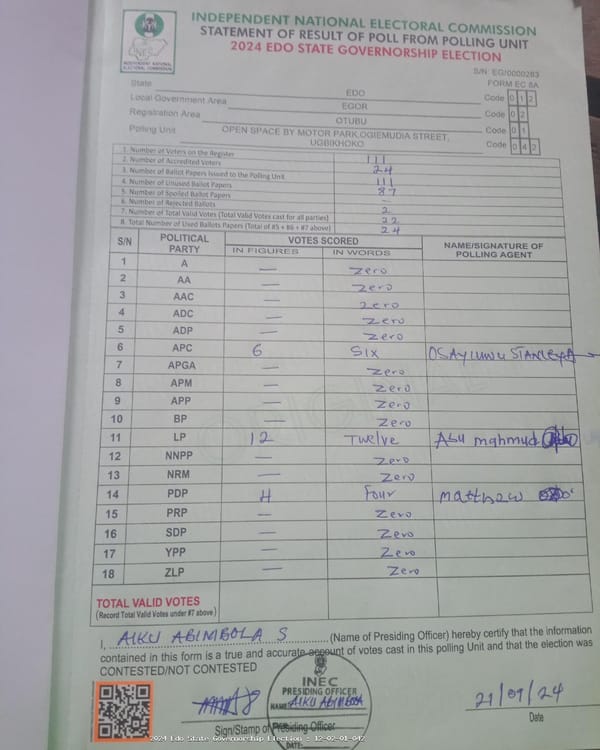 INDEPENDENT NATIONAL ELECTORAL COMMISSION
STATEMENT OF RESULT OF POLL FROM POLLING UNIT
2024 EDO STATE GOVERNORSHIP ELECTION
INEC
INDEPENDENT NATIONAL
ELECTORAL COMMISSION
S/N: EG/0000283
FORM EC 8A
State EDO Code 0 1 2
Local Government Area EGOR Code 0 2
Registration Area OTUBU Code 0 1
Polling Unit OPEN SPACE BY MOTOR PARK,OGIEMUDIA STREET, UGBIKHOKO Code 0 4 2
1. Number of Voters on the Register 111
2. Number of Accredited Voters 24
3. Number of Ballot Papers Issued to the Polling Unit 111
4. Number of Unused Ballot Papers 87
5. Number of Spoiled Ballot Papers -
6. Number of Rejected Ballots 2
7. Number of Total Valid Votes (Total Valid Votes cast for all parties) 22
8. Total Number of Used Ballots Papers (Total of #5 + #6 + #7 above) 24
S/N POLITICAL PARTY VOTES SCORED NAME/SIGNATURE OF POLLING AGENT
IN FIGURES IN WORDS
1 A — Zero
2 AA — Zero
3 AAC — Zero
4 ADC — Zero
5 ADP — Zero
6 APC 6 Six
7 APGA — Zero
8 APM — Zero
9 APP — Zero
10 BP — Zero
11 LP 12 Twelve Abu mahmud
12 NNPP — Zero
13 NRM — Zero
14 PDP 4 Four matthew
15 PRP — Zero
16 SDP — Zero
17 YPP — Zero
18 ZLP — Zero
TOTAL VALID VOTES
(Record Total Valid Votes under #7 above)
I, AIKU ABIMBOLA S (Name of Presiding Officer) hereby certify that the information
contained in this form is a true and accurate account of votes cast in this polling Unit and that the election was
CONTESTED/NOT CONTESTED
INEC
PRESIDING OFFICER
NAME: AIKU ABIMBOLA
DATE:
21/09/24
Sign/Stamp of Presiding Officer
Date
2024 Edo State Governorship Election - 12-02-01-042